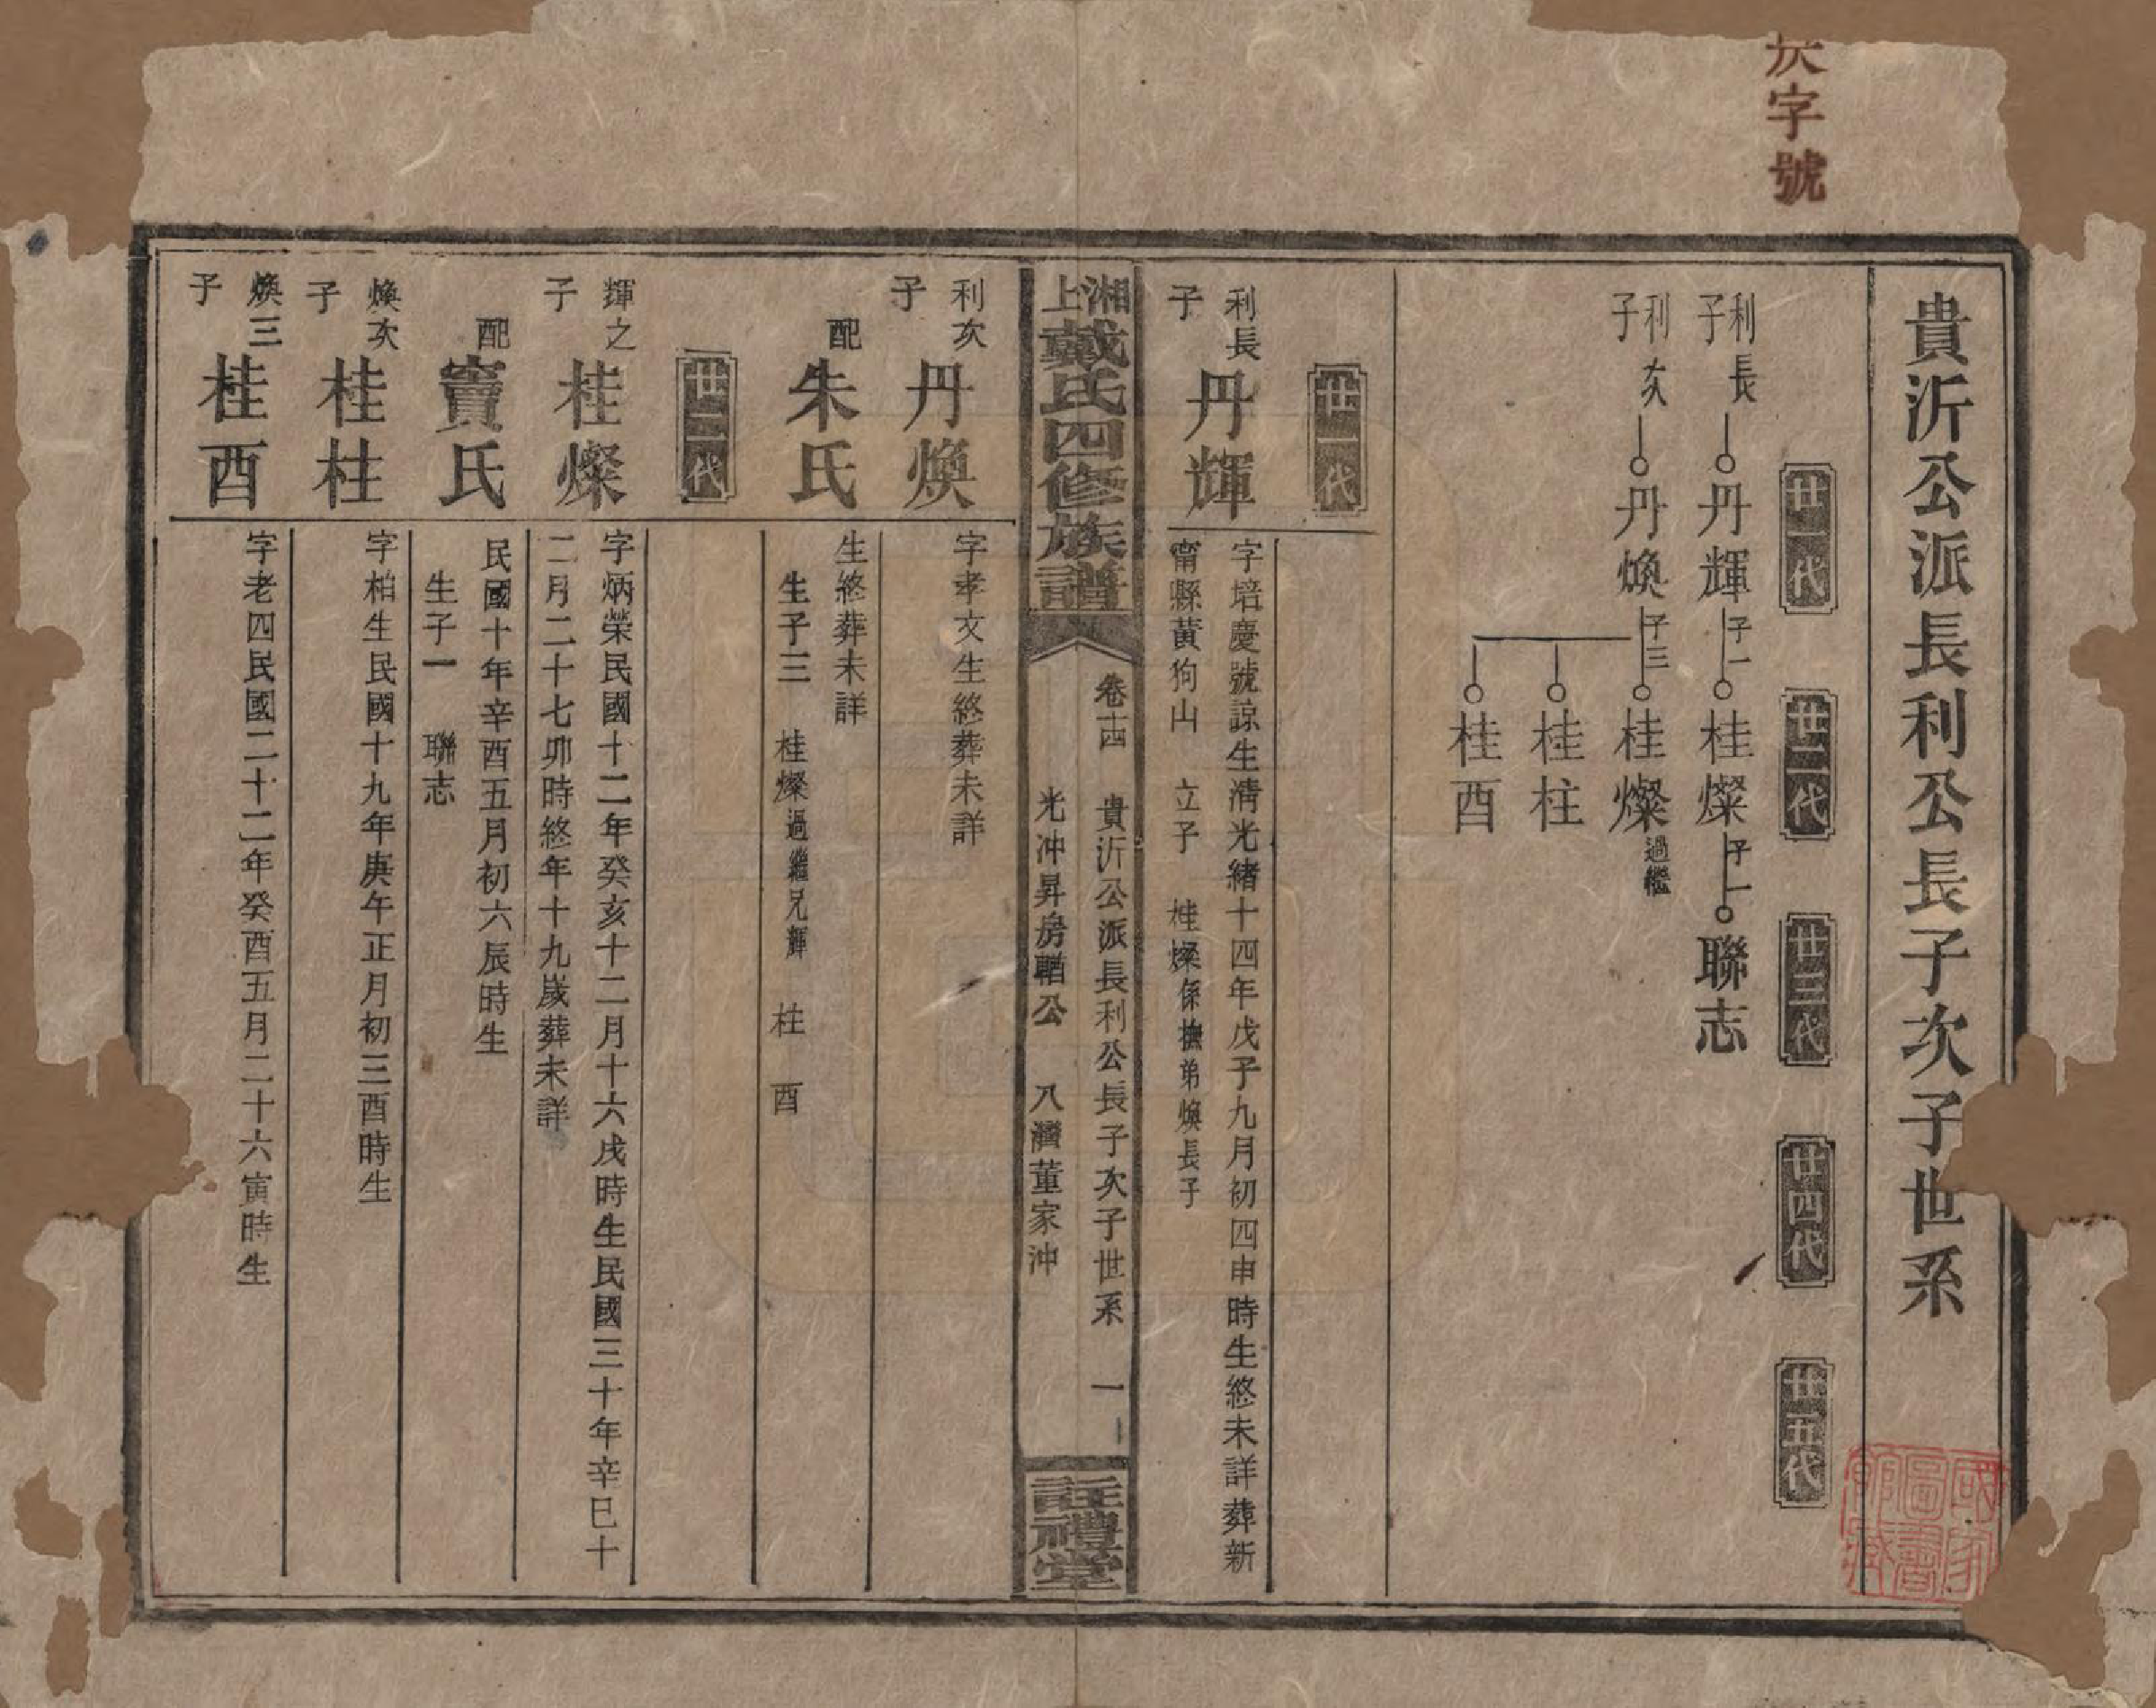 灰字號
貴沂公派長利公長子次子世系
廿一代
廿二代
廿三代
廿四代
廿五代
利長子 丹輝 子一 桂燦 子一 聯志
利次子 丹煥 子三 桂燦 過繼
桂柱
桂酉
廿一代
利長子 丹輝
字培慶號諒生清光緒十四年戊子九月初四申時生終未詳葬新
甯縣黃狗山 立子 桂燦係撫弟煥長子
湘上戴氏四修族譜
卷十四 貴沂公派長利公長子次子世系 一
光沖昇房 公 八灣董家沖
註禮堂
利次子 丹煥
字孝文生終葬未詳
配 朱氏
生終葬未詳
生子三 桂燦過繼兄輝 柱 酉
廿二代
輝之子 桂燦
字炳榮民國十二年癸亥十二月十六戌時生民國三十年辛巳十
二月二十七卯時終年十九歲葬未詳
配 竇氏
民國十年辛酉五月初六辰時生
生子一 聯志
煥次子 桂柱
字柏生民國十九年庚午正月初三酉時生
煥三子 桂酉
字老四民國二十二年癸酉五月二十六寅時生
國家圖書館藏